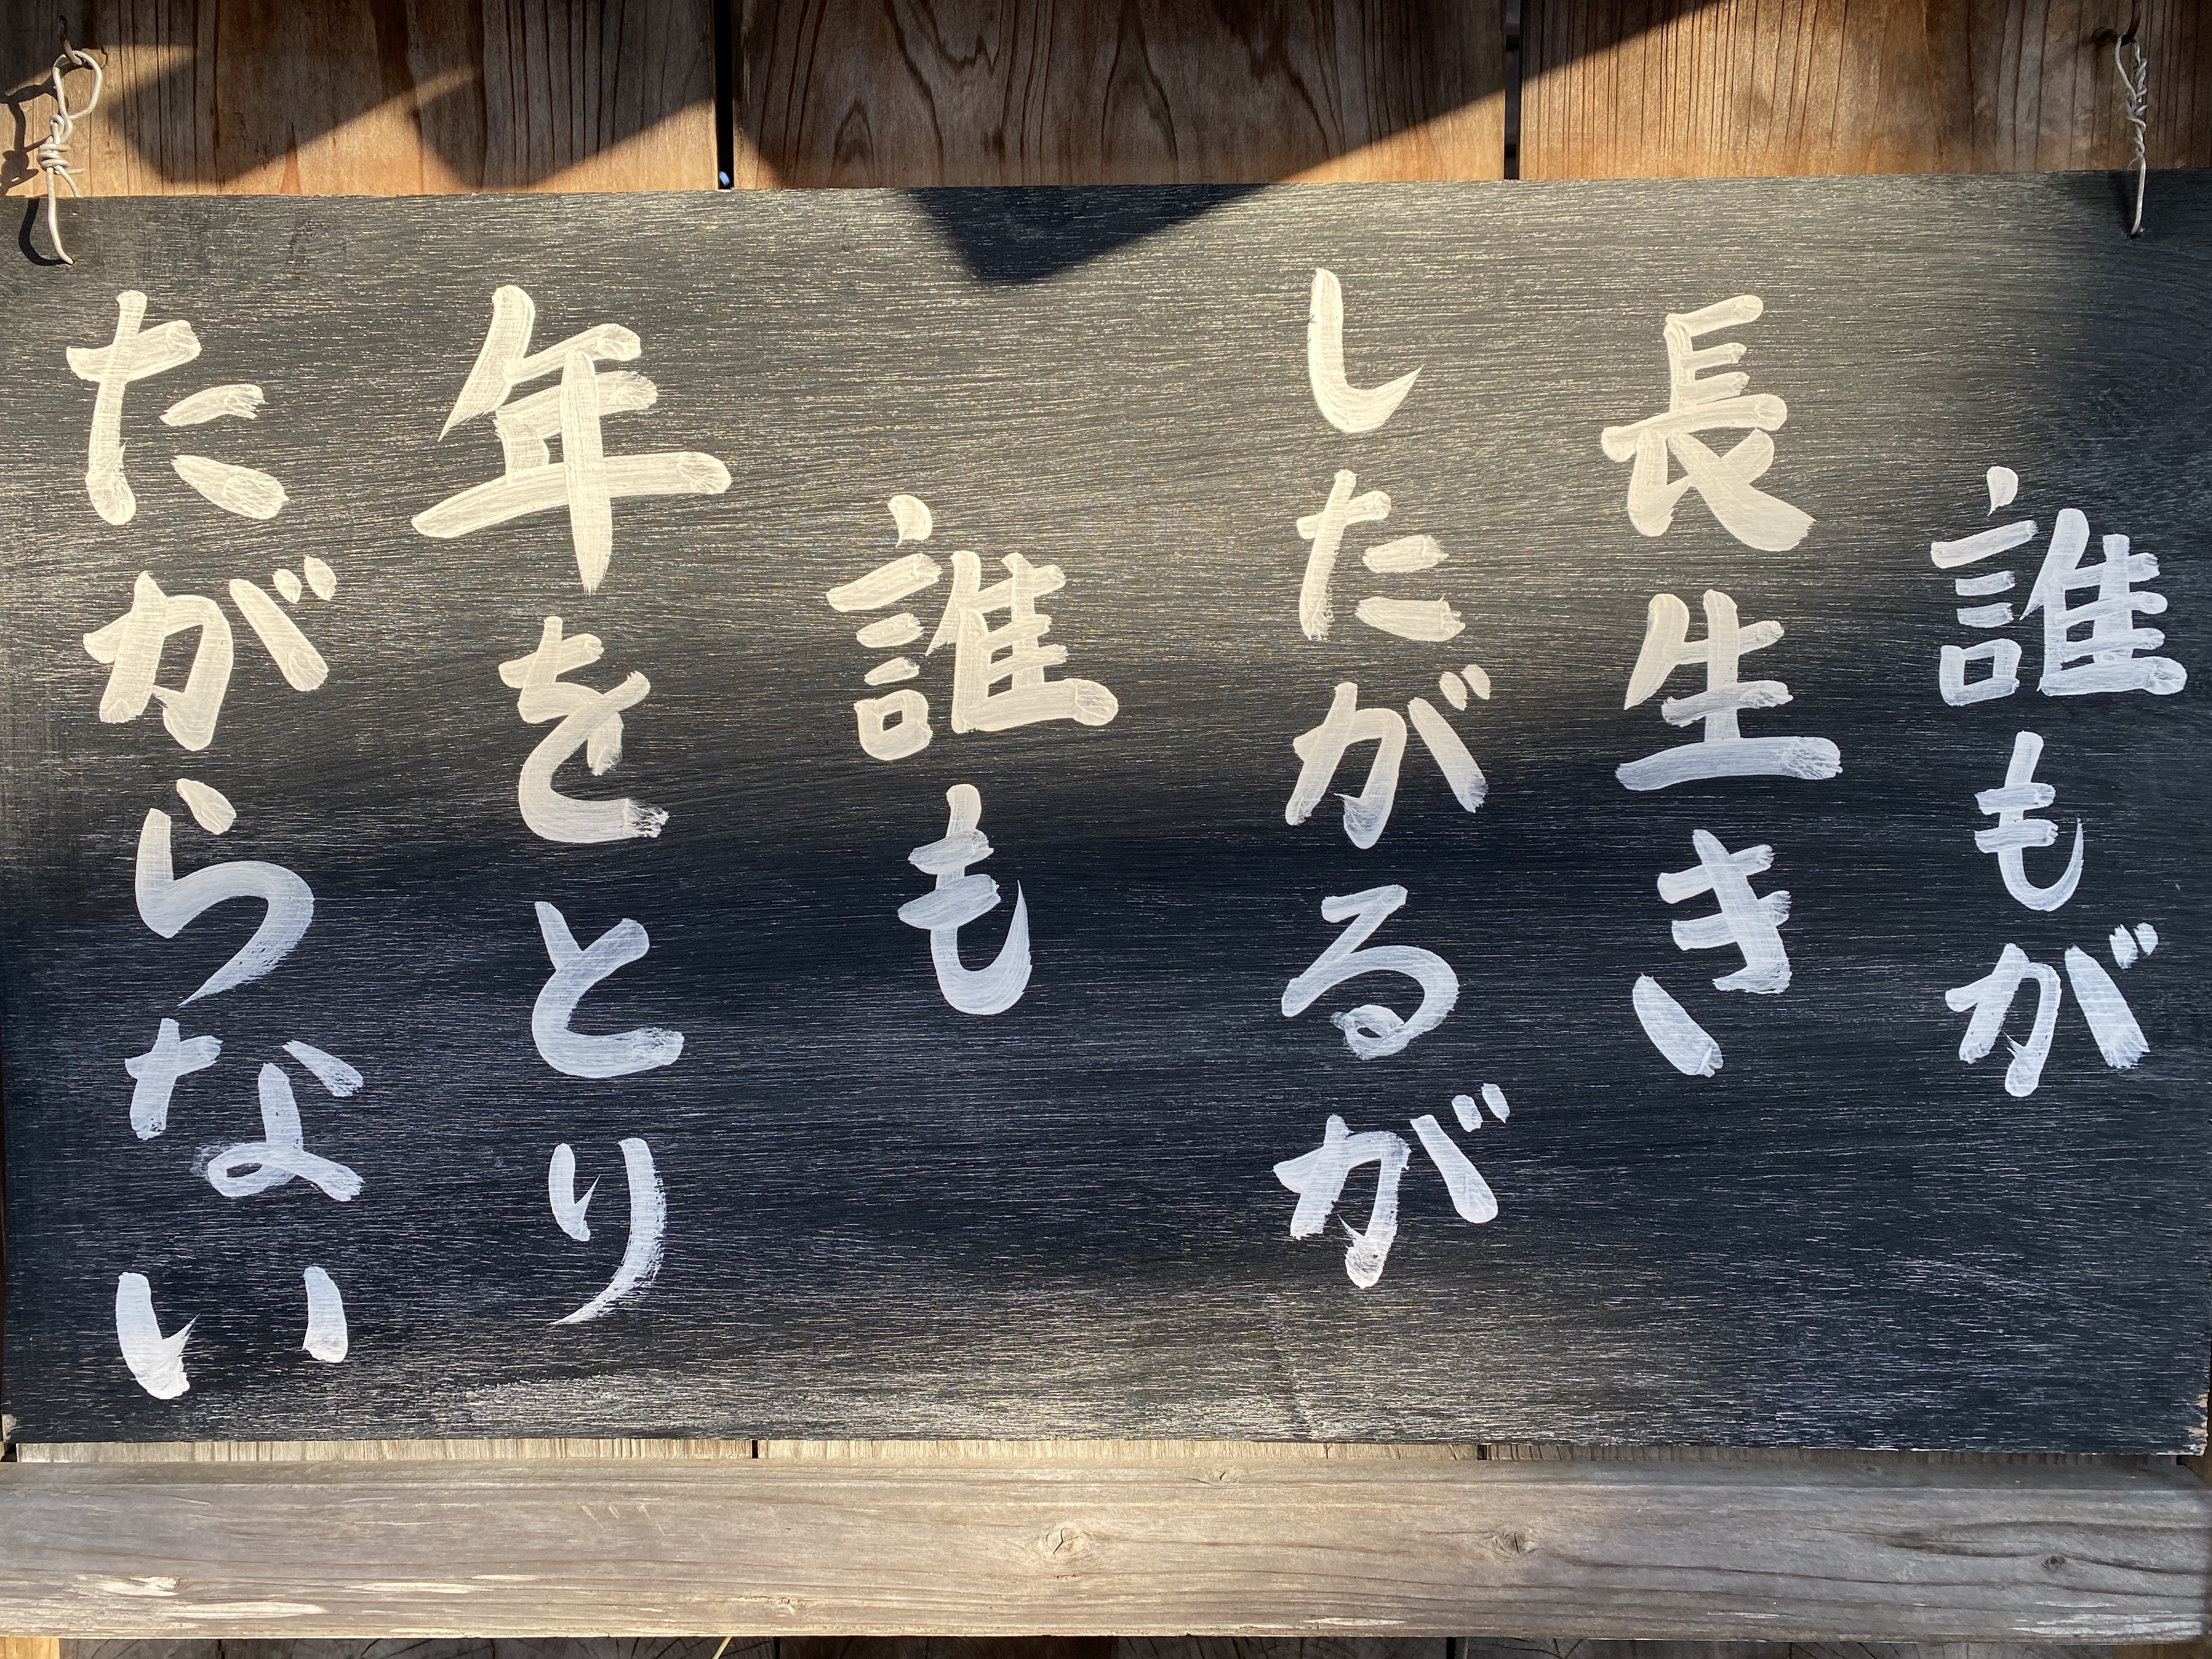 誰もが
長生き
したがるが
誰も
年をとり
たがらない